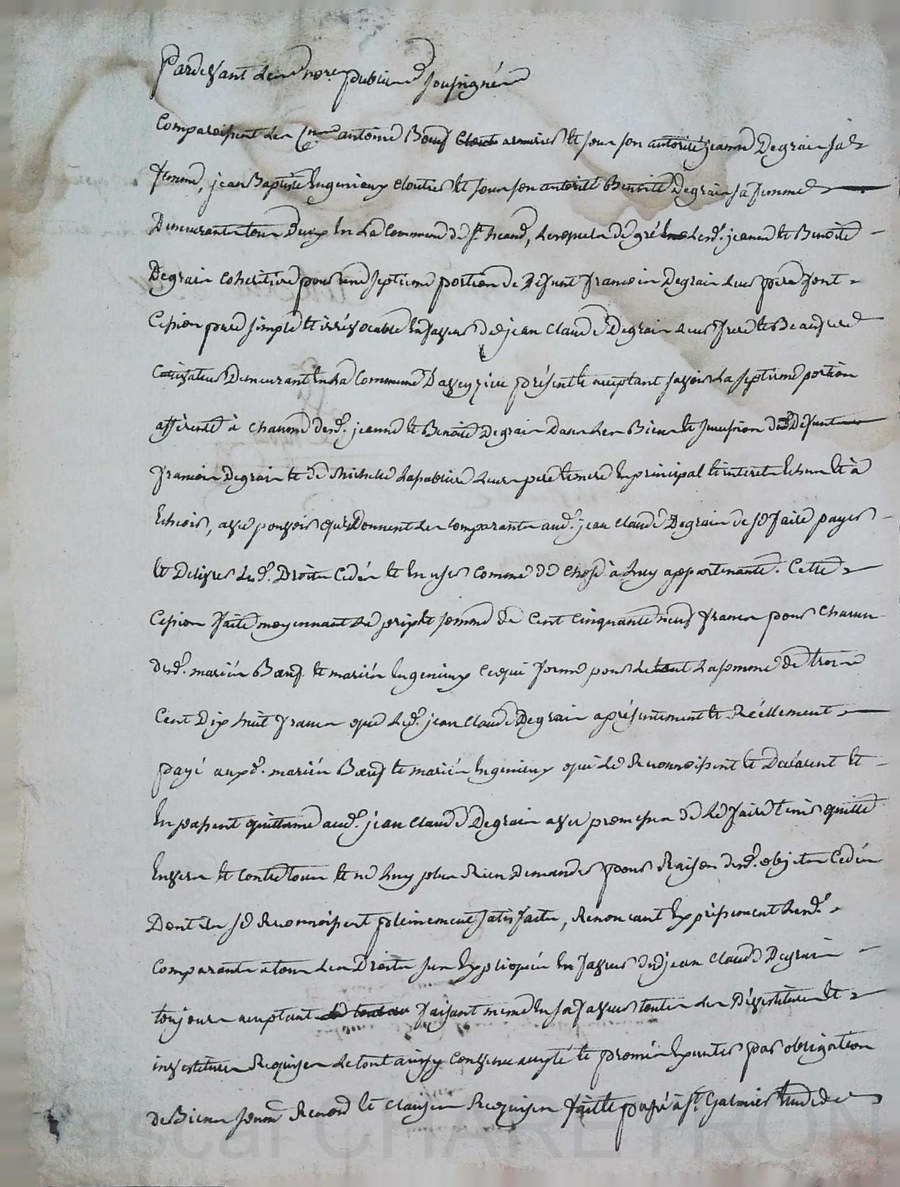 Pardevant les nore publics soussignés
Comparoissent les Cens antoine Bœuf armurier et sous son autorité jeanne Degrain sa
femme, jean Baptiste Ingenieux cloutier et sous son autorité Benoite Degrain sa femme
Demeurants tous Deux en la Commune de St heand, lesquels de gré lesd. jeanne et Benoite
Degrain coheritiere pour une septieme portion de Défunt francois Degrain leur pere font
Cession pure simple et irrévocable en faveur de jean Claude Degrain leur frere et Beaufrere
Cultivateur Demeurant en la Commune D'aveyzieu présent et acceptant savoir la septieme portion
afférente à chacune desd. jeanne et Benoite Degrain Dans les Biens et succession Défunt
francois Degrain et de Michelle leurs pere et mere en principal et interets echus et à
Echeoir, avec pouvoir que Donnent les comparants aud. jean Claude Degrain de se faire payer
et Délivrer lesd. Droits Cédés et en user comme de chose à luy appartenante. Cette
Cession faite moyennant le prix et somme de Cent Cinquante neuf francs pour chacun
desd. mariés Bœuf et mariés Ingenieux ce qui forme pour le tout la somme de trois
Cent Dix huit francs que led. jean Claude Degrain a présentement et Réellement
payé auxd. mariés Bœuf et mariés Ingenieux qui le Reconnoissent et Déclarent et
En passent quittance aud. jean Claude Degrain avec promesse de le faire tenir quitte
Envers et contre tous et ne luy plus Rien Demander pour Raison desd. objets Cédés
Dont ils se Reconnoissent pleinement satisfaits, Renoncant Expressement lesd.
Comparants a tous les Droits sus Expliqués en faveur dud jean Claude Degrain
toujours acceptant faisant même en sa faveur toutes les Dévestitures et
investitures Requises le tout ainsy convenu accepté et promis Executer par obligation
de Biens soumons Renons et clauses Requises fait et passé à St Galmier Etude de